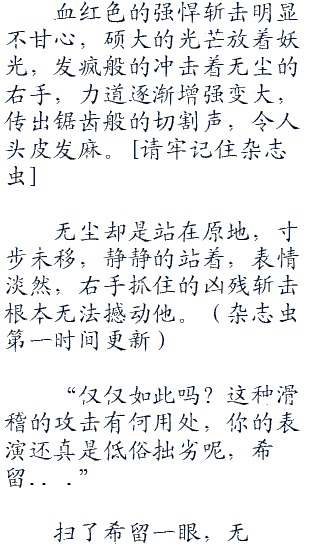 血红色的强悍斩击明显
不甘心，硕大的光芒放着妖
光，发疯般的冲击着无尘的
右手，力道逐渐增强变大，
传出锯齿般的切割声，令人
头皮发麻。[请牢记住杂志
虫]
无尘却是站在原地，寸
步未移，静静的站着，表情
淡然，右手抓住的凶残斩击
根本无法撼动他。（杂志虫
第一时间更新）
“仅仅如此吗？这种滑
稽的攻击有何用处，你的表
演还真是低俗拙劣呢，希
留．．．”
扫了希留一眼，无